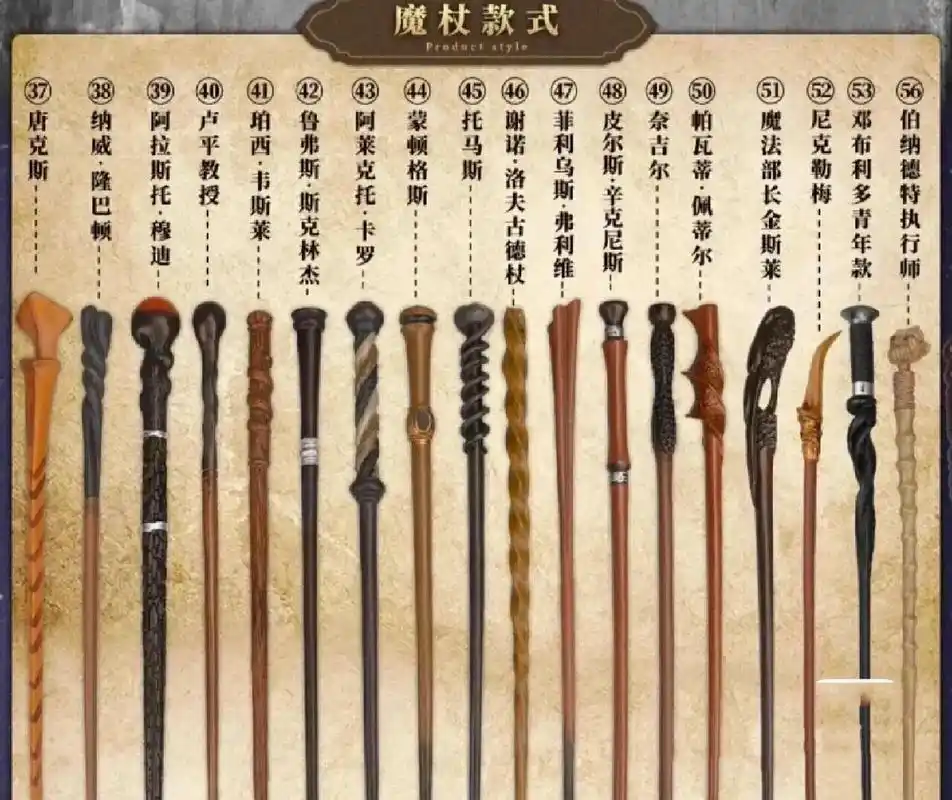 魔杖款式
Product style
㊲ 唐克斯
㊳ 纳威·隆巴顿
㊴ 阿拉斯托·穆迪
㊵ 卢平教授
㊶ 珀西·韦斯莱
㊷ 鲁弗斯·斯克林杰
㊸ 阿莱克托·卡罗
㊹ 蒙顿格斯
㊺ 托马斯
㊻ 谢诺·洛夫古德杖
㊼ 菲利乌斯·弗利维
㊽ 皮尔斯·辛克尼斯
㊾ 奈吉尔
㊿ 帕瓦蒂·佩蒂尔
51 魔法部长金斯莱
52 尼克勒梅
53 邓布利多青年款
56 伯纳德特执行师